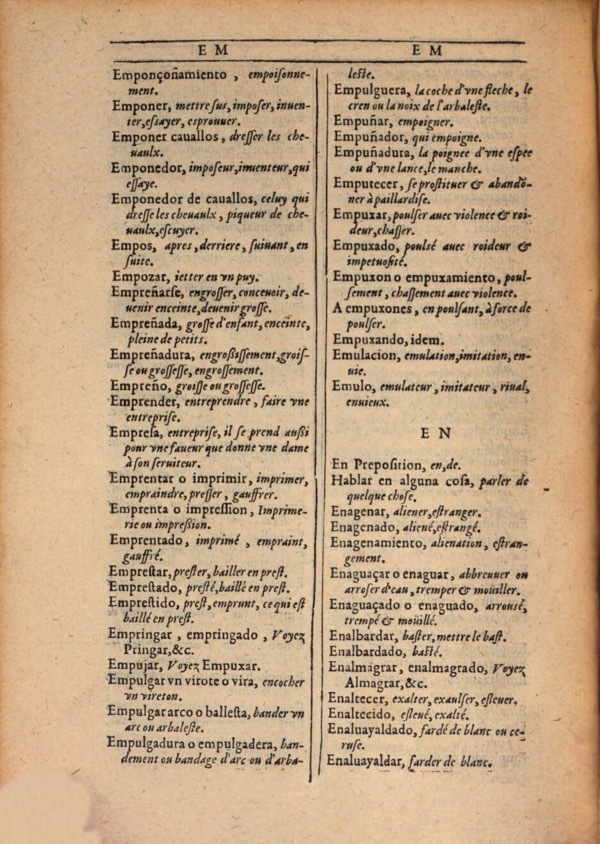 E M
Emponçoñamiento, empoisonne-
ment.
Emponer, mettre sus, imposer, inuen-
ter, essayer, esprouuer.
Emponer cauallos, dresser les che-
uaulx.
Emponedor, imposeur, inuenteur, qui
essaye.
Emponedor de cauallos, celuy qui
dresse les cheuaulx, piqueur de che-
uaulx, escuyer.
Empos, apres, derriere, suiuant, en
suite.
Empozar, ietter en vn puy.
Empreñarse, engrosser, conceuoir, de-
uenir enceinte, deuenir grosse.
Empreñada, grosse d'enfant, enceinte,
pleine de petits.
Empreñadura, engrossissement, grois-
se ou grossesse, engrossement.
Empreño, groisse ou grossesse.
Emprender, entreprendre, faire vne
entreprise.
Empresa, entreprise, il se prend aussi
pour vne faueur que donne vne dame
à son seruiteur.
Emprentar o imprimir, imprimer,
empraindre, presser, gauffrer.
Emprenta o impression, Imprime-
rie ou impression.
Emprentado, imprimé, empraint,
gauffré.
Emprestar, prester, bailler en prest.
Emprestado, presté, baillé en prest.
Emprestido, prest, emprunt, ce qui est
baillé en prest.
Empringar, empringado, Voyez
Pringar, &c.
Empujar, Voyez Empuxar.
Empulgar vn virote o vira, encocher
vn vireton.
Empulgar arco o ballesta, bander vn
arc ou arbaleste.
Empulgadura o empulgadera, ban-
dement ou bandage d'arc ou d'arba-
E M
leste.
Empulguera, la coche d'vne fleche, le
cren ou la noix de l'arbaleste.
Empuñar, empoigner.
Empuñador, qui empoigne.
Empuñadura, la poignee d'vne espee
ou d'vne lance, le manche.
Emputecer, se prostituer & abandō-
ner à paillardise.
Empuxar, poulser auec violence & roi-
deur, chasser.
Empuxado, poulsé auec roideur &
impetuosité.
Empuxon o empuxamiento, poul-
sement, chassement auec violence.
A empuxones, en poulsant, à force de
poulser.
Empuxando, idem.
Emulacion, emulation, imitation, en-
uie.
Emulo, emulateur, imitateur, riual,
enuieux.
E N
En Preposition, en, de.
Hablar en alguna cosa, parler de
quelque chose.
Enagenar, aliener, estranger.
Enagenado, aliené, estrangé.
Enagenamiento, alienation, estran-
gement.
Enaguaçar o enaguar, abbreuuer ou
arroser d'eau, tremper & moüiller.
Enaguaçado o enaguado, arrousé,
trempé & moüillé.
Enalbardar, baster, mettre le bast.
Enalbardado, basté.
Enalmagrar, enalmagrado, Voyez
Almagrar, &c.
Enaltecer, exalter, exaulser, esleuer.
Enaltecido, esleué, exalté.
Enaluayaldado, fardé de blanc ou ce-
ruse.
Enaluayaldar, farder de blanc.